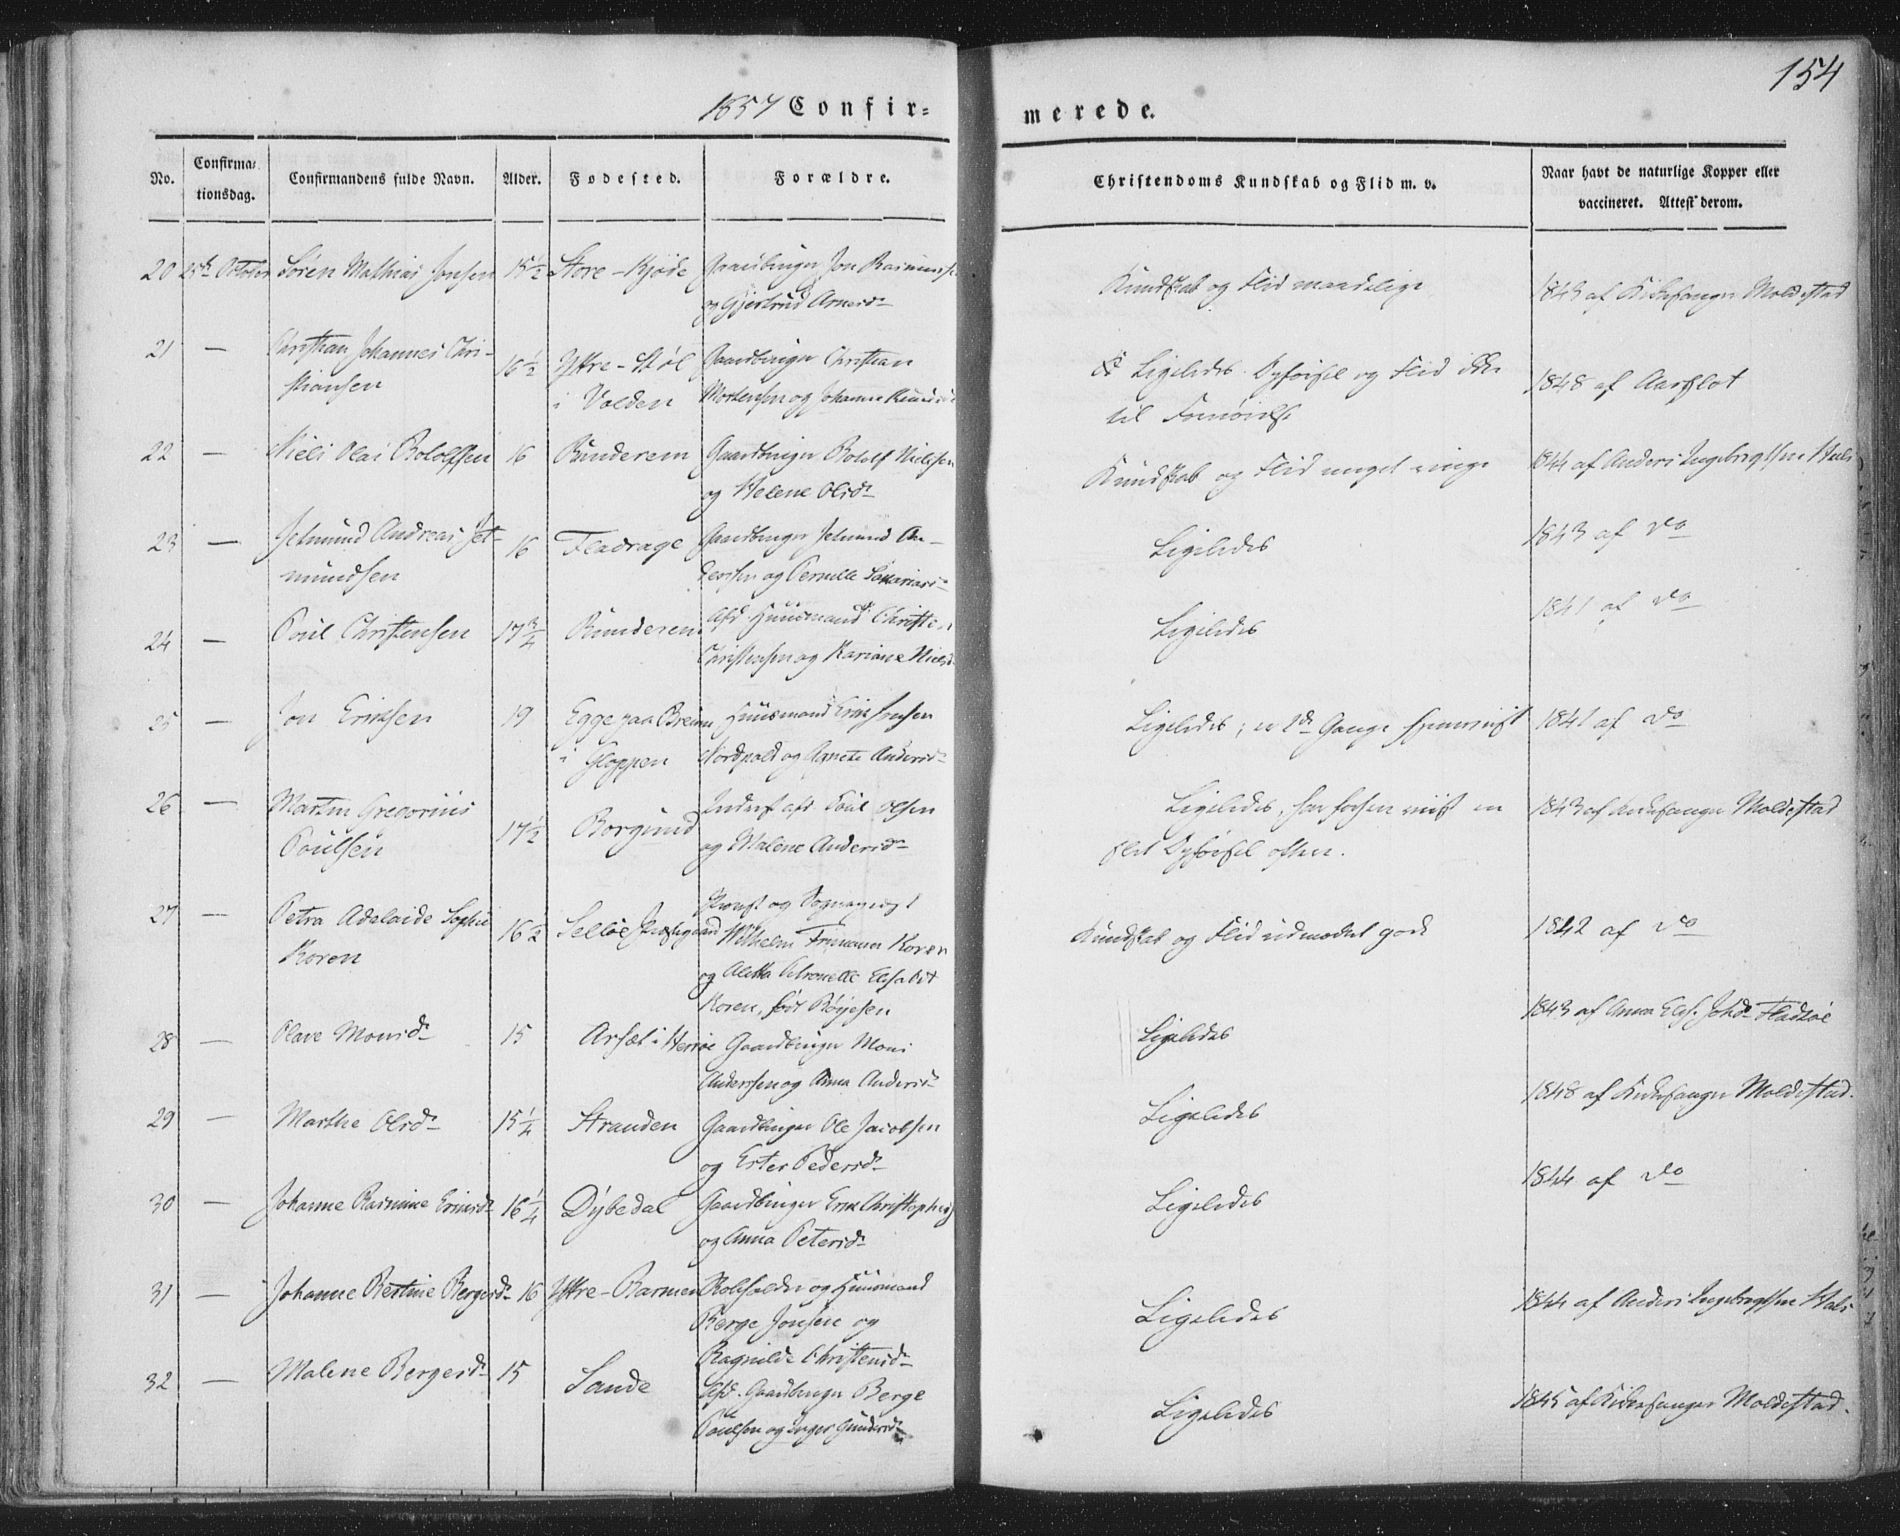 154
1857 Confir=
merede.
No.
Confirma=
tionsdag.
Confirmandens fulde Navn.
Alder.
Fødested.
Forældre.
Christendoms Kundskab og Flid m. v.
Naar havt de naturlige Kopper eller
vaccineret. Attest derom.
20 25de October Søren Mathias Jonsen 15½ Store-Kjøde Gaardbruger Jon Rasmuss
og Gjertrud Arnesdr
Kundskab og Flid maadelige
1843 af Kirkesanger Moldestad
21 — Christian Johannes Chri-
stiansen
16½ Ytre-Støl
i Volden
Gaardbruger Christian
Mortensen og Johanne
Ligeledes Opførsel og Flid ikke
til Fornøielse
1848 af Aarflot
22 — Niels Olai Rolofsen 16 Runderem Gaardbruger Rololf Nielsen
og Helene Olsdr
Kundskab og Flid meget ringe
1844 af Anders Ingebregtsen Hals
23 — Jetmund Andreas Jet-
mundsen
16 Fladrage Gaardbruger Jetmund An-
dersen og Pernille Sakariasdr
Ligeledes
1843 af do
24 — Poul Christensen 17¾ Runderem Afd Huusmand Christen
Christensen og Kariane Nielsd
Ligeledes
1841 af do
25 — Jon Eriksen 19 Egge paa Breim
i Gloppen
Huusmand Erik Jonsen
Nordpold og Agnete Andersdr
Ligeledes; er 2de Gange fremviist
1841 af do
26 — Martin Gregorius
Poulsen
17½ Borgund Inderst afd. Poul Olsen
og Malene Andersdr
Ligeledes, har viist en
slet Opførsel often.
1843 af Kirkesanger Moldestad
27 — Petra Adelaide Sophie
Koren
16½ Selløe Præstegaard
Provst og Sognepræst
Wilhelm Frimann Koren
og Aletta Petronelle Elisabet
Koren, født Børjesen
Kundskab og Flid udmærket gode
1842 af do
28 — Olave Monsdr 15 Arset i Herøe Gaardbruger Mons
Anderssen og Anna Andersdr
Ligeledes
1843 af Anna Elis. Johdr Fladøe
29 — Marthe Olsdr 15¼ Stranden Gaardbruger Ole Jacobsen
og Ester Pedersdr
Ligeledes
1848 af Kirkesanger Moldestad.
30 — Johanne Rasmine Ericsdr 16¼ Dybedal Gaardbruger Erik Christophers
og Anna Petersdr
Ligeledes
1844 af do
31 — Johanne Bertine Bergesdr 16 Ytre-Barmen Rolfholder og Huusmand
Berge Jonsen og
Ragnilde Christensdr
Ligeledes
1844 af Anders Ingebregtsen Hals
32 — Malene Bergesdr 15 Sande
Afd. Gaardbruger Berge
Poulsen og Inger Gundersdr
Ligeledes
1845 af Kirkesanger Moldestad.